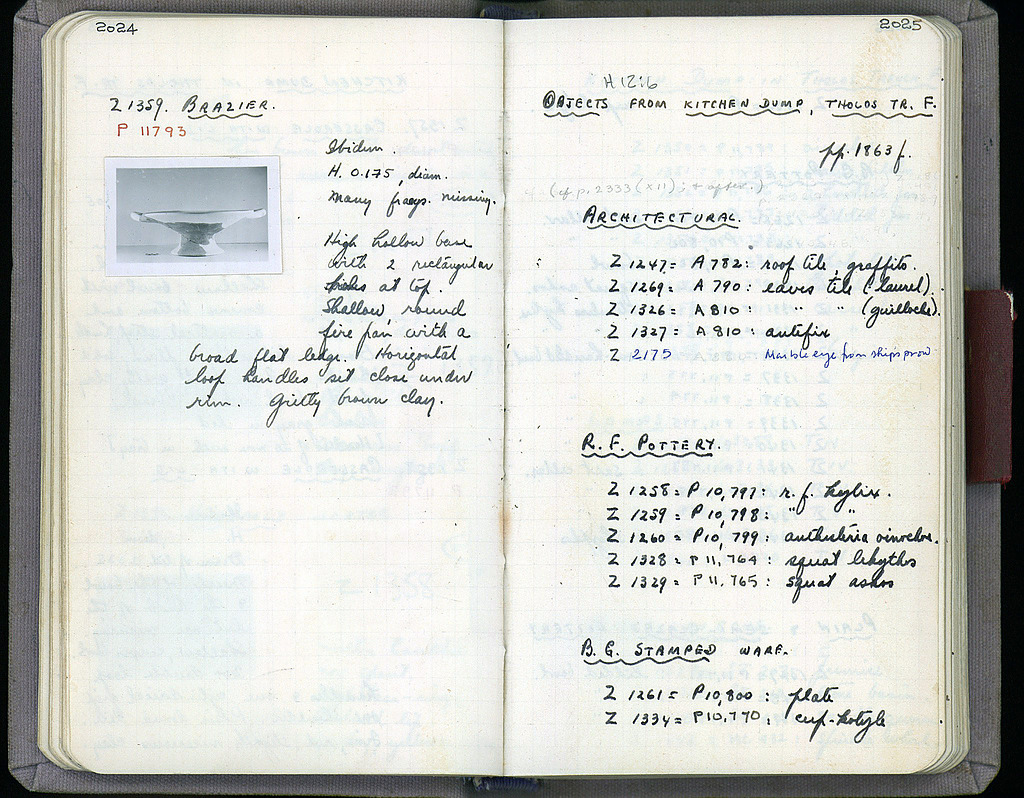 2024
Z 1359. BRAZIER.
P 11793
Ibidem
H. 0.175, diam.
Many frags. missing.
High hollow base
with 2 rectangular
holes at top.
Shallow, round
fire pan, with a
broad flat ledge. Horizontal
loop handles set close under
rim. Gritty brown clay.
2025
H 12:6
OBJECTS FROM KITCHEN DUMP, THOLOS TR. F.
pp. 1863 f.
(cf p. 2333 (XII); + after.)
ARCHITECTURAL.
Z 1247 = A 782: roof tile, graffito.
Z 1269 = A 790: eaves tile (laurel).
Z 1326 = A 810: " " (guilloche).
Z 1327 = A 810: antifix
Z 2175 Marble eye from ships prow
R. F. POTTERY.
Z 1258 = P 10,797: r. f. kylix.
Z 1259 = P 10,798: " "
Z 1260 = P 10,799: anthesteria oinochoe.
Z 1328 = P 11,764: squat lekythos
Z 1329 = P 11,765: squat askos
B. G. STAMPED WARE.
Z 1261 = P 10,800: plate
Z 1334 = P 10,770: cup-kotyle